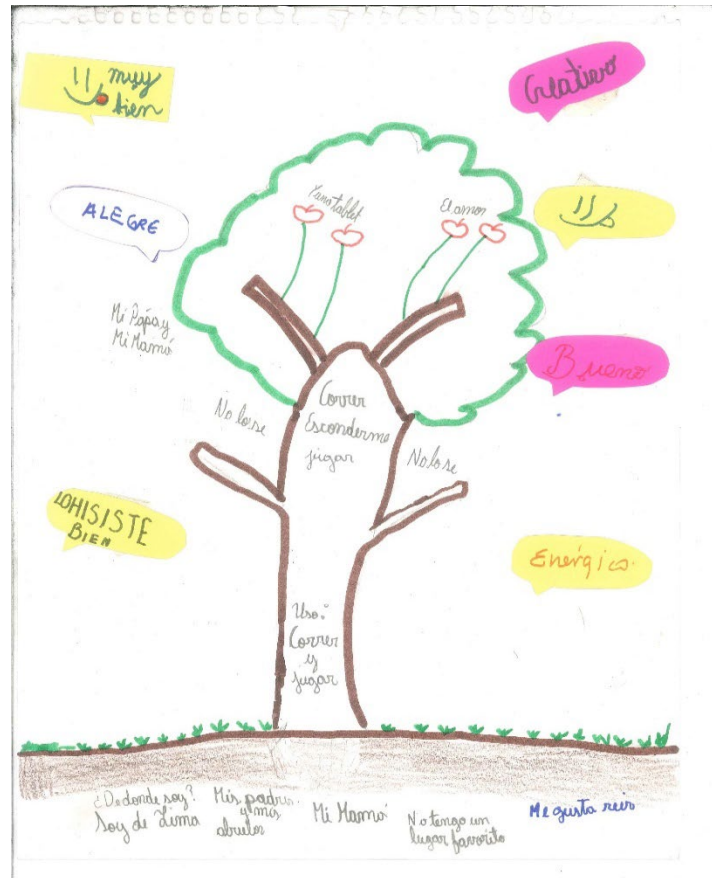 muy
bien
Creativo
ALEGRE
Y una tablet
El amor
Mi Pápa y
Mi Mamá
Bueno
No lo se
Correr
Esconderme
jugar
No lo se
LO HISISTE
BIEN
Enérgico
Uso:
Correr
y
jugar
¿De donde soy?
Soy de Lima
Mis padres
y mis
abuelos
Mi Mamá
No tengo un
lugar favorito
Me gusta reir